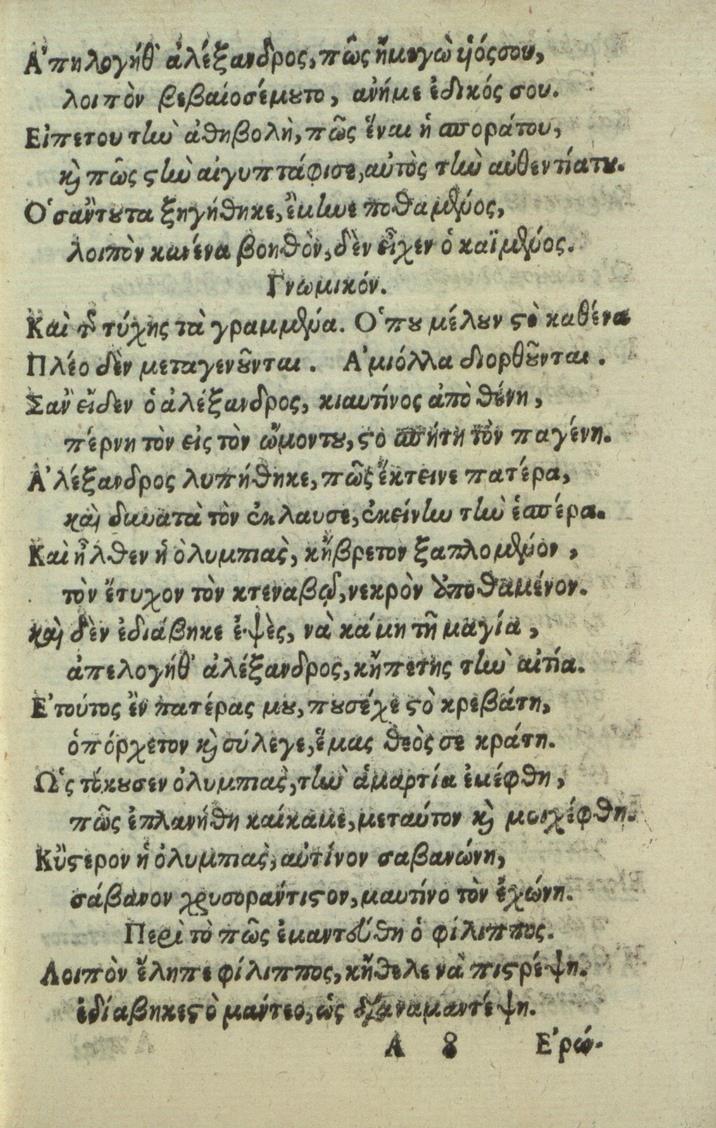 Ἀπηλογήθ' ἀλέξανδρος, πῶς ἤμεγὼ ὑιόςσου,
λοιπὸν βεβαίοσέμουτο, ανήμε ἐδικός σου.
Εἰπετου τὴν ἀθηβολὴ, πῶς ἔναι ἡ σποράτου,
καὶ πῶς στὴν αἰγυπτάφισε, αὐτὸς τὴν αὐθεντίατου.
Ὁσαντουτα ξηγήθηκε, ἔμεινε ποθαμένος,
λοιπὸν κανένα βοηθὸν, δὲν εἶχεν ὁ καϊμένος.
Γνωμικόν.
Καὶ τῆς τύχης τὰ γραμμένα. Ὁπου μέλουν στὸ καθένα
Πλέο δὲν μεταγενοῦνται. Ἀμιόλλα διορθοῦνται.
Σαν εἶδεν ὁ ἀλέξανδρος, κιαυτίνος ἀπὸ θένη,
πέρνη τὸν εἰς τὸν ὦμοντου, στο σπήτη τὸν παγένη.
Ἀλέξανδρος λυπήθηκε, πῶς ἔκτεινε πατέρα,
καὶ δυνατὰ τὸν ἐκλαυσε, ἐκείνην τὴν ἑσπέρα.
Καὶ ἦλθεν ἡ ὀλυμπιὰς, κῆβρετον ξαπλομένον,
τὸν ἔτυχον τὸν κτεναβῶ, νεκρὸν ὑποθαμένον.
καὶ δὲν ἐδιάβηκε ἐψὲς, νὰ κάμη τῆ μαγία,
ἀπελογήθ' ἀλέξανδρος, κἤπετης τὴν αἰτία.
Ἐτούτος ἐν πατέρας μου, πουσέχε στὸ κρεβάτη,
ὁπόρχετον καὶ σύλεγε, ἔμας θεὸς σε κράτη.
Ὡς τόκουσεν ὀλυμπιὰς, τὴν ἁμαρτία ἐμέφθη,
πῶς ἐπλανήθη καίκαμε, μεταύτον καὶ μοιχέφθη.
Κὕστερον ἡ ὀλυμπιὰς, αὐτίνον σαβανώνη,
σάβανον χρυσοράντιστον, μαυτίνο τὸν ἐχώνη.
Περὶ τὸ πῶς ἐμαντεύθη ὁ φίλιππος.
Λοιπὸν ἔληπε φίλιππος, κἤθελε νὰ πιστρέψη.
ἐδίαβηκε στὸ μαντεο, ὡς διαναμαντέψη.
Α 8 Ἐρώ-